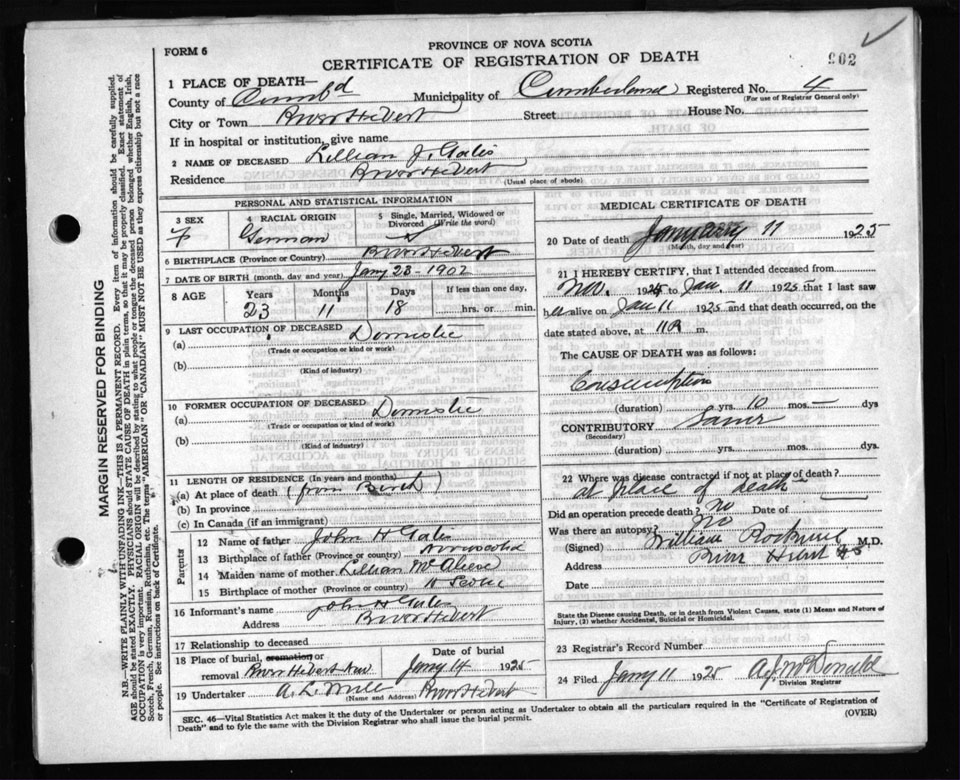 FORM 6
PROVINCE OF NOVA SCOTIA
CERTIFICATE OF REGISTRATION OF DEATH
902
1 PLACE OF DEATH—
County of Cumb'd Municipality of Cumberland Registered No. 4
(For use of Registrar General only)
City or Town River Hebert Street House No.
If in hospital or institution, give name
2 NAME OF DECEASED Lillian J. Galis
Residence River Hebert
(Usual place of abode)
PERSONAL AND STATISTICAL INFORMATION
3 SEX F
4 RACIAL ORIGIN German
5 Single, Married, Widowed or Divorced (Write the word) S
6 BIRTHPLACE (Province or Country) River Hebert
7 DATE OF BIRTH (month, day and year) Jany 23 - 1902
8 AGE Years Months Days If less than one day,
23 11 18 hrs. or min.
9 LAST OCCUPATION OF DECEASED
(a) Domistic
(Trade or occupation or kind or work)
(b)
(Kind of industry)
10 FORMER OCCUPATION OF DECEASED
(a) Domistic
(Trade or occupation or kind of work)
(b)
(Kind of industry)
11 LENGTH OF RESIDENCE (In years and months)
(a) At place of death (from Birth)
(b) In province
(c) In Canada (if an immigrant)
Parents
12 Name of father John H Galis
13 Birthplace of father (Province or country)
14 Maiden name of mother Lillian
15 Birthplace of mother (Province or country) N Scotia
16 Informant's name John H Galis
Address River Hebert
17 Relationship to deceased
18 Place of burial, cremation or removal River Hebert
Date of burial Jany 14 1925
19 Undertaker A. L. River Hebert
(Name and Address)
MEDICAL CERTIFICATE OF DEATH
20 Date of death January 11 1925
(Month, day and year)
21 I HEREBY CERTIFY, that I attended deceased from
Nov. 1924 to Jan. 11 1925 that I last saw
her alive on Jan 11 1925 and that death occurred, on the
date stated above, at 11 P m.
The CAUSE OF DEATH was as follows:
Consumption
(duration) yrs. 10 mos. — dys
CONTRIBUTORY Same
(Secondary)
(duration) yrs. mos. dys
22 Where was disease contracted if not at place of death?
at place of death
Did an operation precede death? no Date of
Was there an autopsy? No
(Signed) William Rockwell M.D.
Address River Hebert NS
Date
State the Disease causing Death, or in death from Violent Causes, state (1) Means and Nature of
Injury, (2) whether Accidental, Suicidal or Homicidal.
23 Registrar's Record Number
24 Filed Jany 11 1925 A.J. McDonald
Division Registrar
SEC. 46—Vital Statistics Act makes it the duty of the Undertaker or person acting as Undertaker to obtain all the particulars required in the "Certificate of Registration of
Death" and to fyle the same with the Division Registrar who shall issue the burial permit.
(OVER)
MARGIN RESERVED FOR BINDING
N.B.—WRITE PLAINLY WITH UNFADING INK—THIS IS A PERMANENT RECORD. Every item of information should be carefully supplied.
AGE should be stated EXACTLY. PHYSICIANS should STATE CAUSE OF DEATH in plain terms, so that it may be properly classified. Exact statement of
OCCUPATION is very important. RACIAL ORIGIN will be described by stating to what people or tongue the deceased person belonged whether English, Irish,
Scotch, French, German, Russian, Ruthenian, etc. The terms "AMERICAN" OR "CANADIAN" MUST NOT BE USED as they express citizenship but not a race
or people. See instructions on back of Certificate.